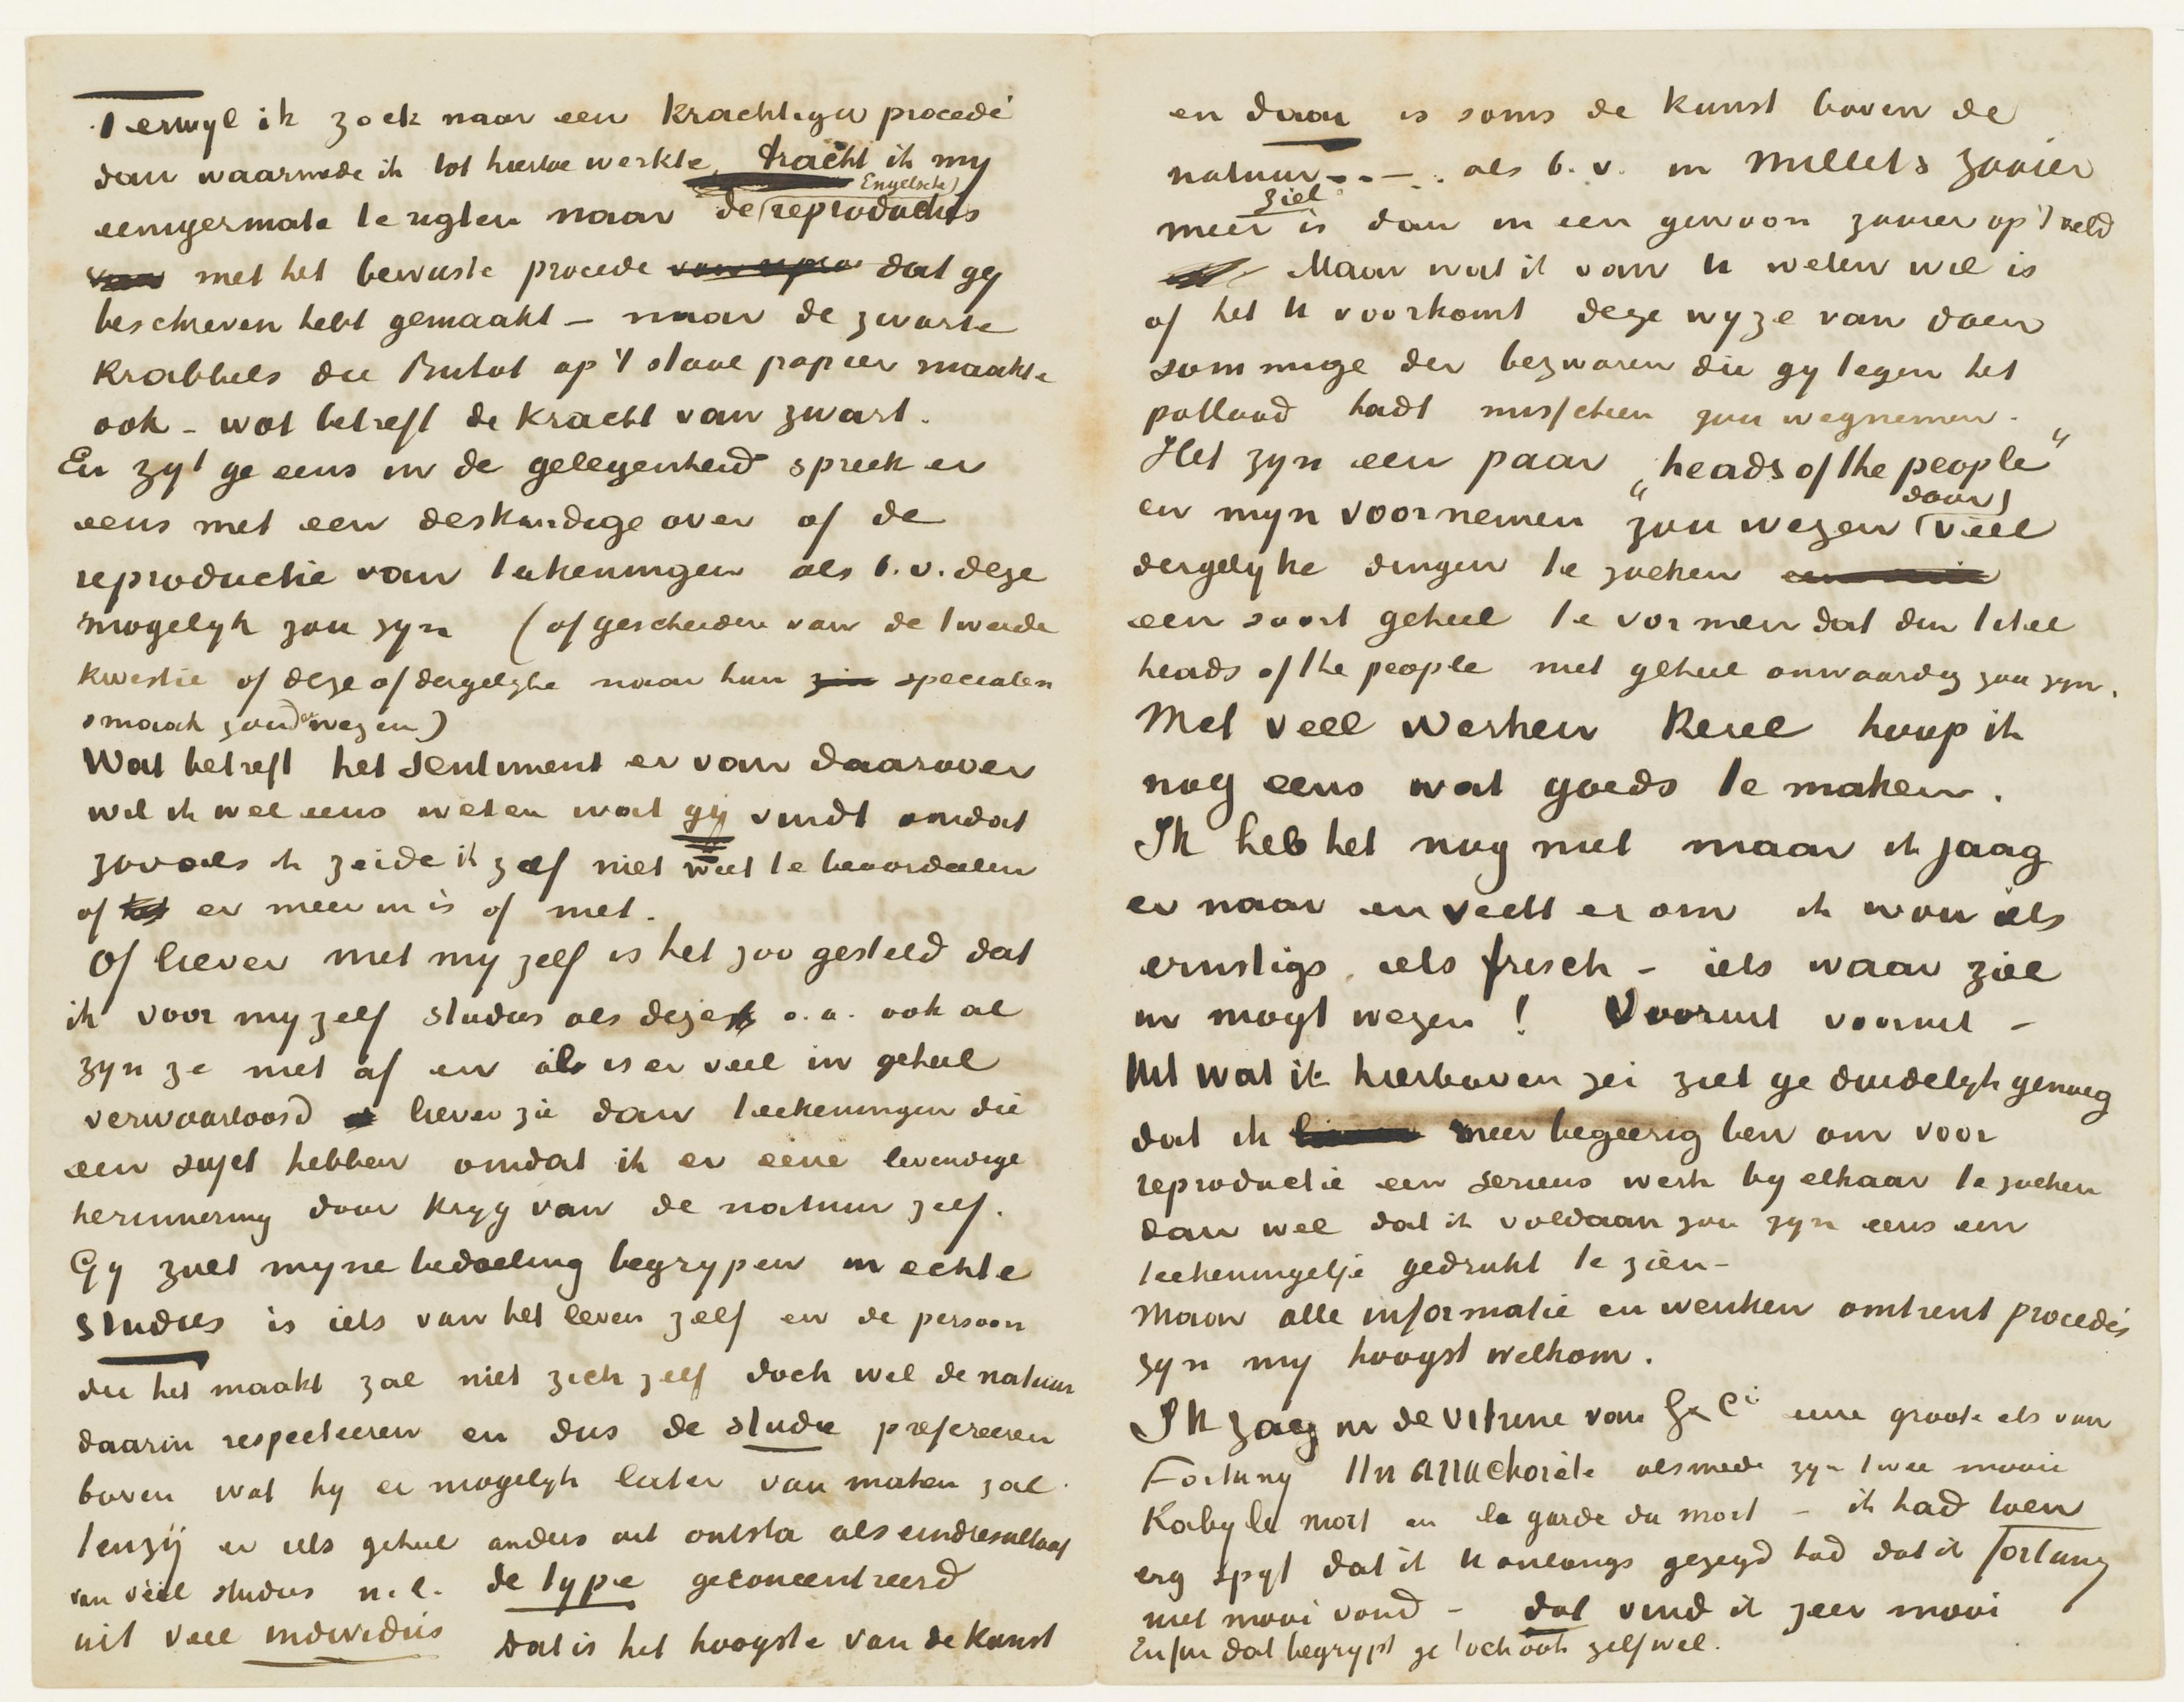 Terwyl ik zoek naar een krachtiger procedé
dan waarmede ik tot hiertoe werkte, tracht ik my
eenigermate te rigten naar de (Engelsche) reproducties
van met het bewuste procede van repro dat gy
beschreven hebt gemaakt – naar de zwarte
Krabbels die Buhot op 't staal papier maakte
ook – wat betreft de kracht van zwart.
En zyt ge eens in de gelegenheid spreek er
eens met een deskundige over of de
reproductie van teekeningen als b.v. deze
mogelyk zou zyn (afgescheiden van de tweede
kwestie of deze of dergelyke naar hun zin specialen
smaak zouden wezen)
Wat betreft het sentiment er van daarover
wil ik wel eens weten wat gy vindt omdat
zooals ik zeide ik zelf niet weet te beoordeelen
of het er meer in is of niet.
Of liever met my zelf is het zoo gesteld dat
ik voor my zelf studies als deze o.a. ook al
zyn ze niet af en al is er veel in geheel
verwaarloosd liever zie dan teekeningen die
een sujet hebben omdat ik er eene levendige
herinnering door kryg van de natuur zelf.
Gy zult myne bedoeling begrypen in echte
studies is iets van het leven zelf en de persoon
die het maakt zal niet zich zelf doch wel de natuur
daarin respecteeren en dus de studie prefereeren
boven wat hy er mogelyk later van maken zal.
tenzy er iets geheel anders uit ontsta als eindresultaat
van veel studies n.l. de type geconcentreerd
uit veel individu's dat is het hoogste van de kunst
en daar is soms de kunst boven de
natuur - - - . . als b.v. in Millets zaaier
meer ziel is dan in een gewoon zaaier op 't veld
Maar wat ik van U weten wil is
of het U voorkomt deze wyze van doen
sommige der bezwaren die gy tegen het
potlood hadt misschien zou wegnemen.
Het zyn een paar „heads of the people"
en myn voornemen zou wezen (door) veel
dergelyke dingen te zoeken een serie
een soort geheel te vormen dat den titel
heads of the people niet geheel onwaardig zou zyn.
Met veel werken Kerel hoop ik
nog eens wat goeds te maken.
Ik heb het nog niet maar ik jaag
er naar en vecht er om ik wou iets
ernstigs, iets frisch – iets waar ziel
in mogt wezen! Vooruit vooruit –
Uit wat ik hierboven zei ziet ge duidelyk genoeg
dat ik liever meer begeerig ben om voor
reproductie een serieus werk by elkaar te zoeken
dan wel dat ik voldaan zou zyn eens een
teekeningetje gedrukt te zien –
Maar alle informatie en wenken omtrent procedés
zyn my hoogst welkom.
Ik zag in de vitrine van G & Cie eene groote ets van
Fortuny Un anachorète alsmede zyn twee mooie
Kabyle mort en la garde du mort – ik had toen
erg spyt dat ik U onlangs gezegd had dat ik Fortuny
niet mooi vond – dat vind ik zeer mooi
Enfin dat begrypt ge toch ook zelf wel.